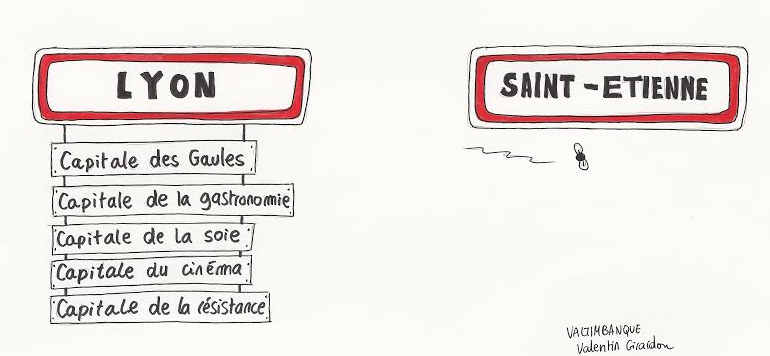 LYON
Capitale des Gaules
Capitale de la gastronomie
Capitale de la soie
Capitale du cinéma
Capitale de la résistance
SAINT-ETIENNE
VALTIMBANQUE
Valentin Girardon